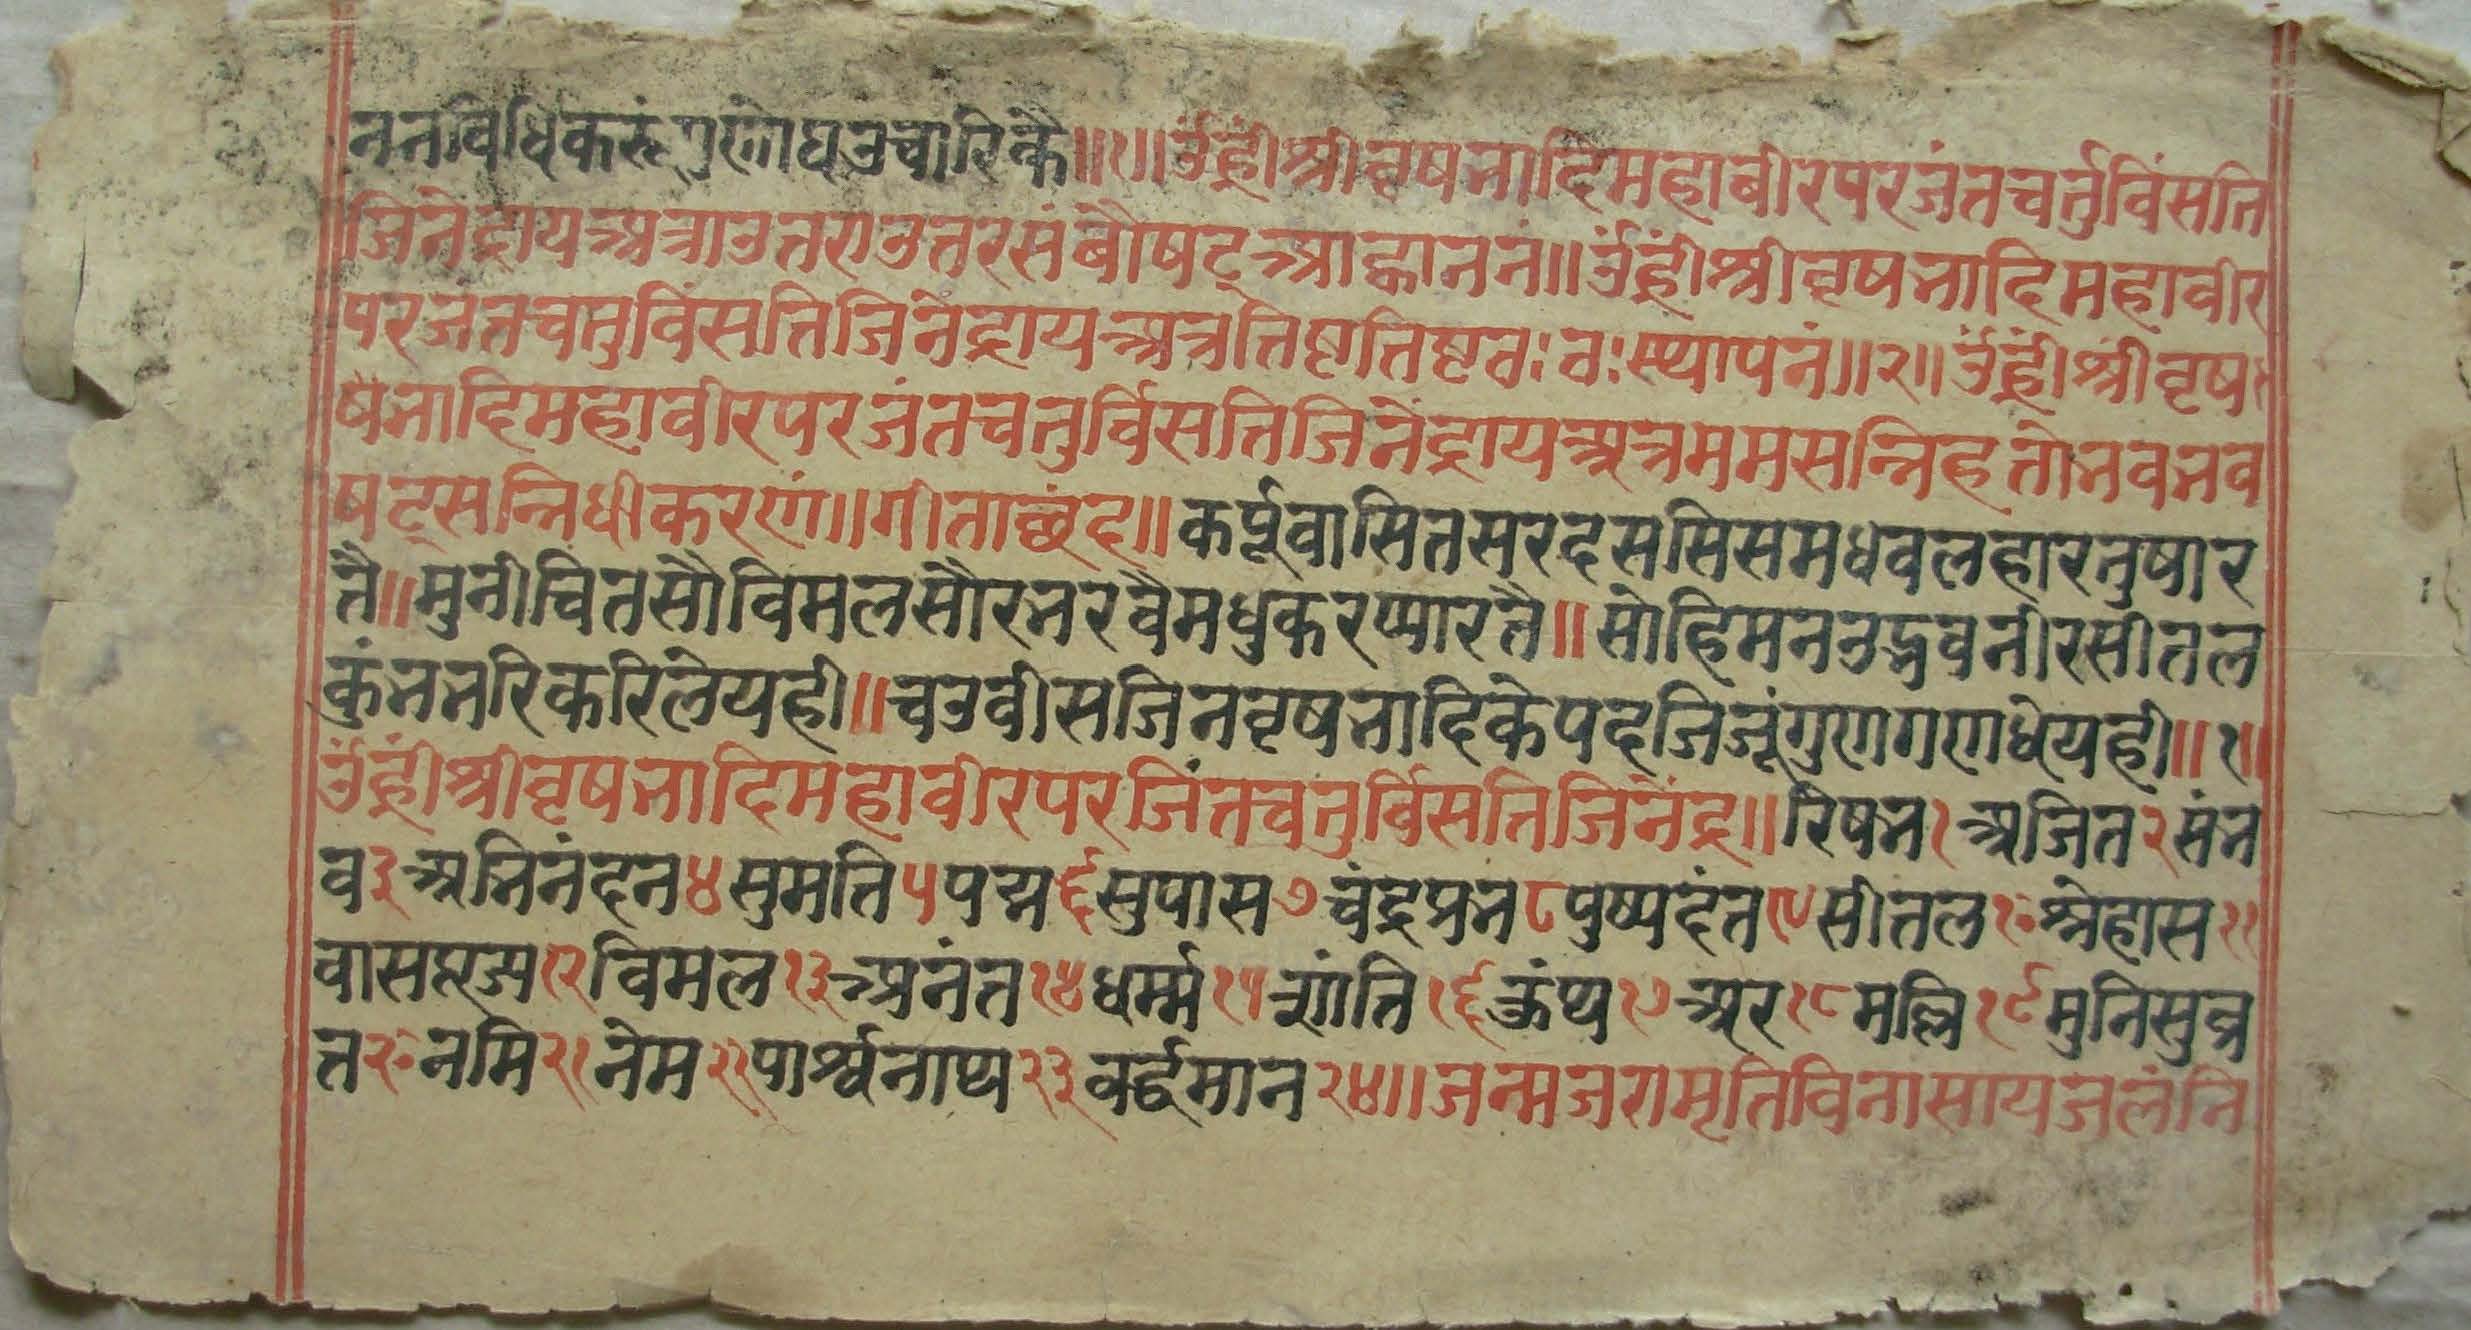 ननविधिकरूंगुणोघउचारिकै॥१॥उंह्रींश्रीवृषभादिमहाबीरपरजंतचर्तुविंसति
जिनेंद्रायअत्राउतराउत्तरसंबौषट्आह्वाननं॥उंह्रींश्रीवृषभादिमहावीर
परजंतचतुर्विंसतिजिनेंद्रायअत्रतिष्टतिष्टवः वः स्थापनं॥२॥उंह्रींश्रीवृष
षभादिमहावीरपरजंतचतुर्विसतिजिनेंद्रायअत्रममसन्निहतोभवभव
षट्सन्निधीकरणं॥गीताछंद॥कर्पूवासितसरदससिसमधवलहारतुषार
तै॥मुनीचितसौविमलसौरभरवैमधुकरप्पारतै॥सोहिमनउद्भवनीरसीतल
कुंभभरिकरिलेयही॥चउवीसजिनवृषभादिकेपदजिजूंगुणगणधेयही॥१॥
उंह्रींश्रीवृषभादिमहावीरपरजिंतचतुर्विसतिजिनेंद्र॥रिषभ१अजित२संभ
व३अभिनंदन४सुमति५पद्म६सुपास७चंद्रप्रभ८पुष्पदंत९सीतल१०श्रेहास११
वासपूज्य१२विमल१३अनंत१४धर्म्म१५शांति१६कुंथ१७अर१८मल्लि१९मुनिसुव्र
त२०नमि२१नेम२२पार्श्वनाथ२३वर्द्धमान२४॥जन्मजरामृतिविनासायजलंनि